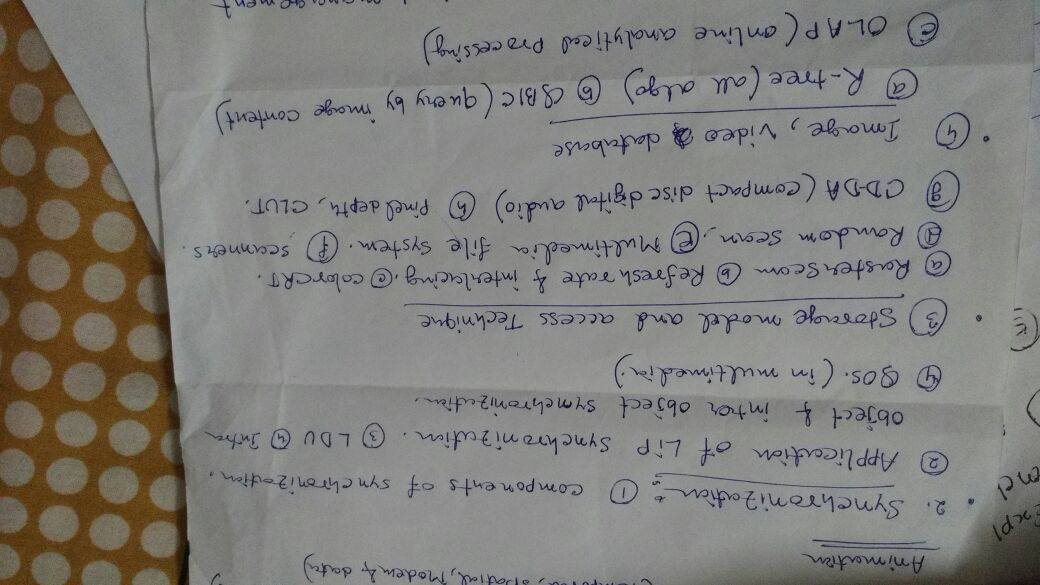 spatial, Modem & data)
Animation
Expl
• 2. Synchronization : ① components of synchronization.
② Application of Lip synchronization. ③ LDU ④ Intra
object & inter object synchronization.
④ QOS. (in multimedia.)
• ③ Storage model and access Technique
ⓐ Raster scan ⓑ Refresh rate & interlacing. ⓒ color CRT.
ⓓ Random scan, ⓔ Multimedia file system. ⓕ scanners.
ⓖ CD-DA (compact disc digital audio) ⓗ Pixel depth, CLUT.
• ④ Image, video & database
ⓐ R-tree (all algo) ⓑ QBIC (query by image content)
ⓒ OLAP (online analytical Processing)
management